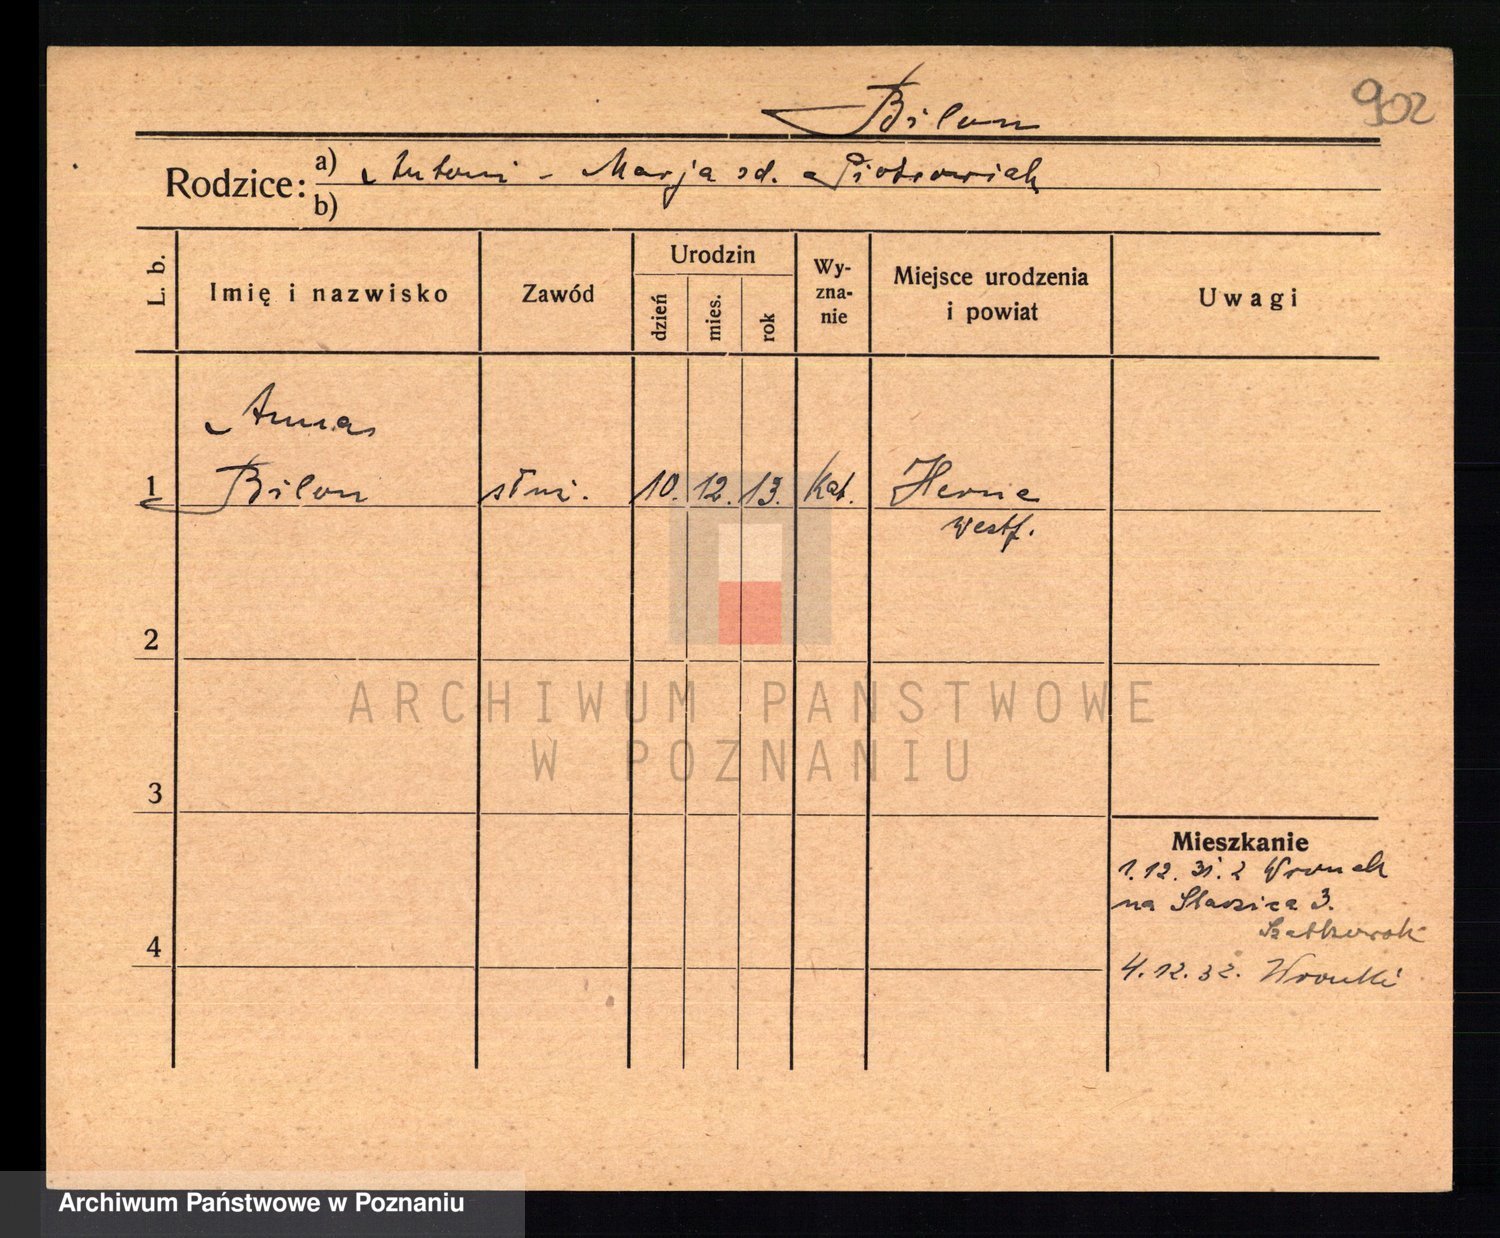 Bilon
902
Rodzice:
a) Antoni - Marja zd. Piotrowiak
b)
L. b.
Imię i nazwisko
Zawód
Urodzin
dzień
mies.
rok
Wy-
zna-
nie
Miejsce urodzenia
i powiat
Uwagi
Anna
1 Bilon służ. 10. 12. 13. Kat. Herne
Westf.
2
ARCHIWUM PAŃSTWOWE
W POZNANIU
3
Mieszkanie
1.12.31. z Wronek
na Staszica 3.
4
4.12.32. Wronki
Archiwum Państwowe w Poznaniu